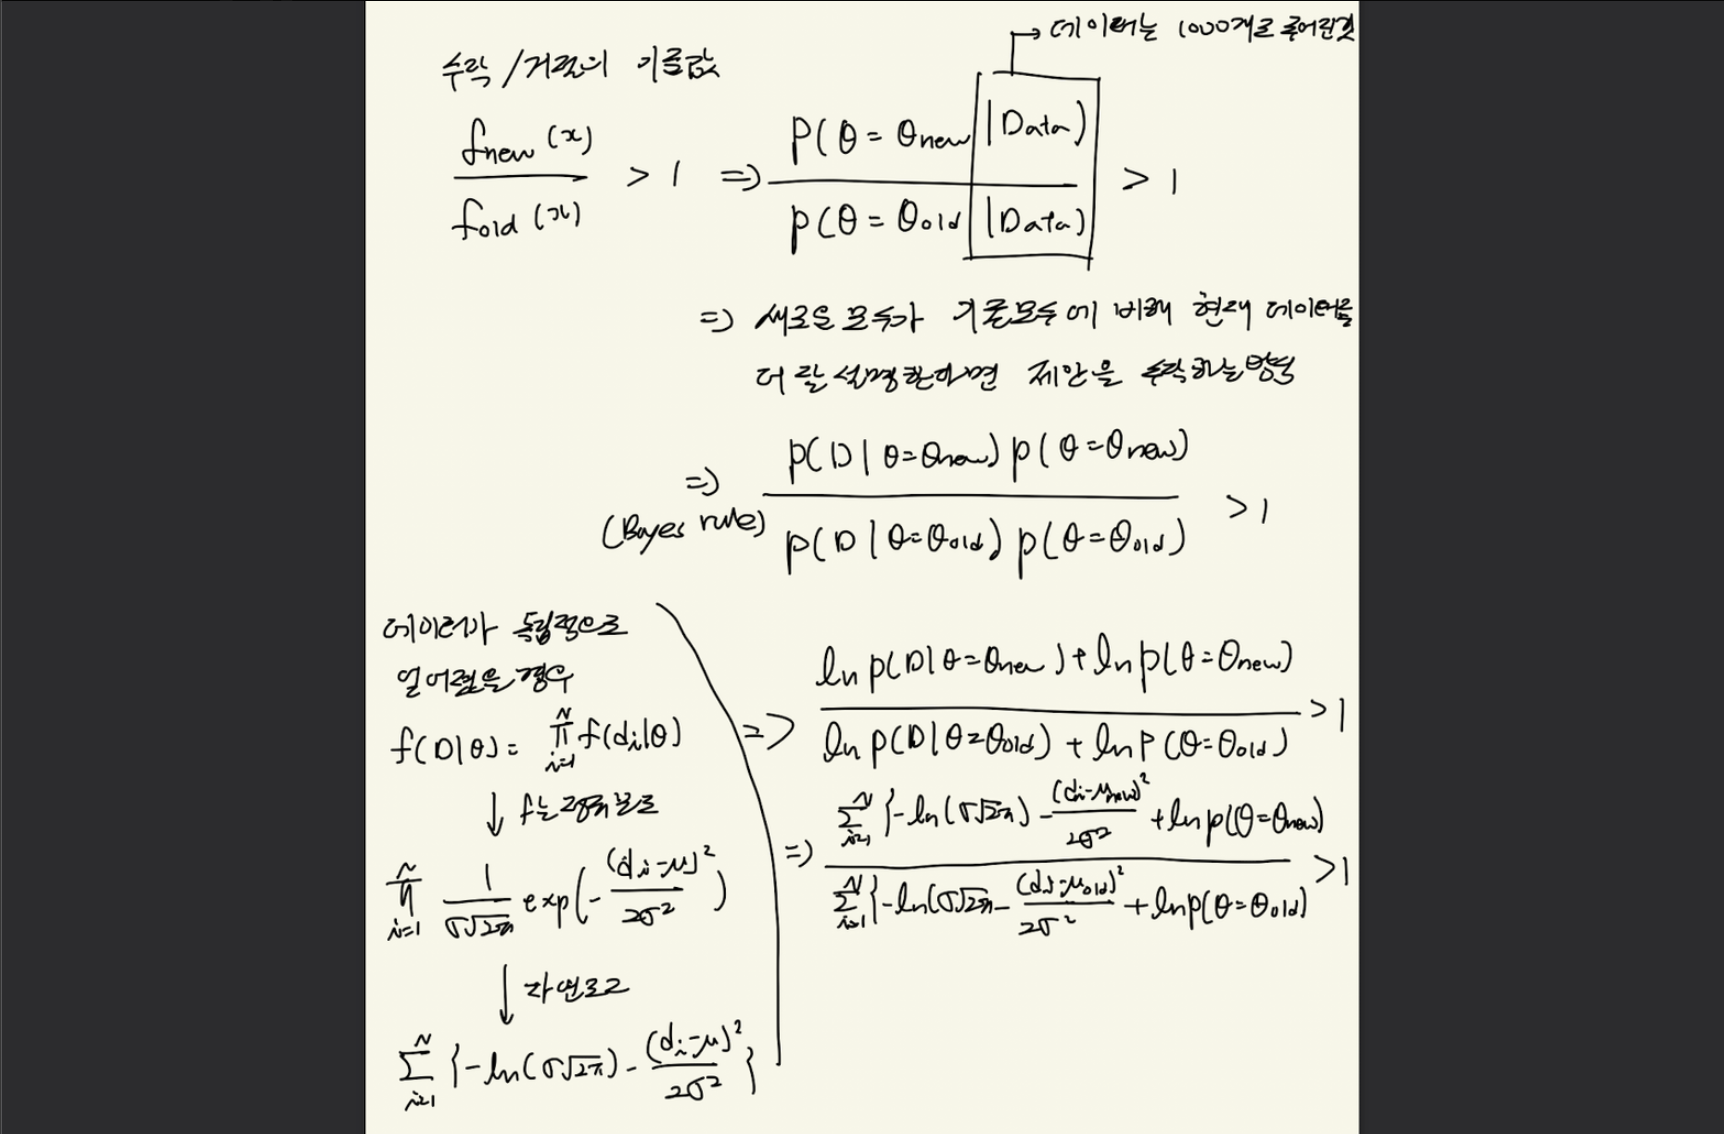 → 데이터는 1000개로 주어진것
수락 / 거절의 기준값
fnew (x) / fold (x) > 1 => P(θ = θnew |Data) / P(θ = θold |Data) > 1
=> 새로운 모수가 기존모수에 비해 현재 데이터를
더 잘 설명한다면 제안을 수락하는 방식
=> (Bayes rule) p(D | θ=θnew) p(θ=θnew) / p(D | θ=θold) p(θ=θold) > 1
데이터가 독립적으로
얻어졌을 경우
f(D|θ) = ∏_{i=1}^{N} f(di|θ)
↓ f는 정규분포
∏_{i=1}^{N} 1/(σ√2π) exp(-(di-μ)²/2σ²)
↓ 자연로그
∑_{i=1}^{N} {-ln(σ√2π) - (di-μ)²/2σ²}
=> ln p(D|θ=θnew) + ln p(θ=θnew) / ln p(D|θ=θold) + ln P(θ=θold) > 1
=> ∑_{i=1}^{N} {-ln(σ√2π) - (di-μnew)²/2σ² + ln p(θ=θnew) / ∑_{i=1}^{N} {-ln(σ√2π - (di-μold)²/2σ² + ln p(θ=θold) > 1